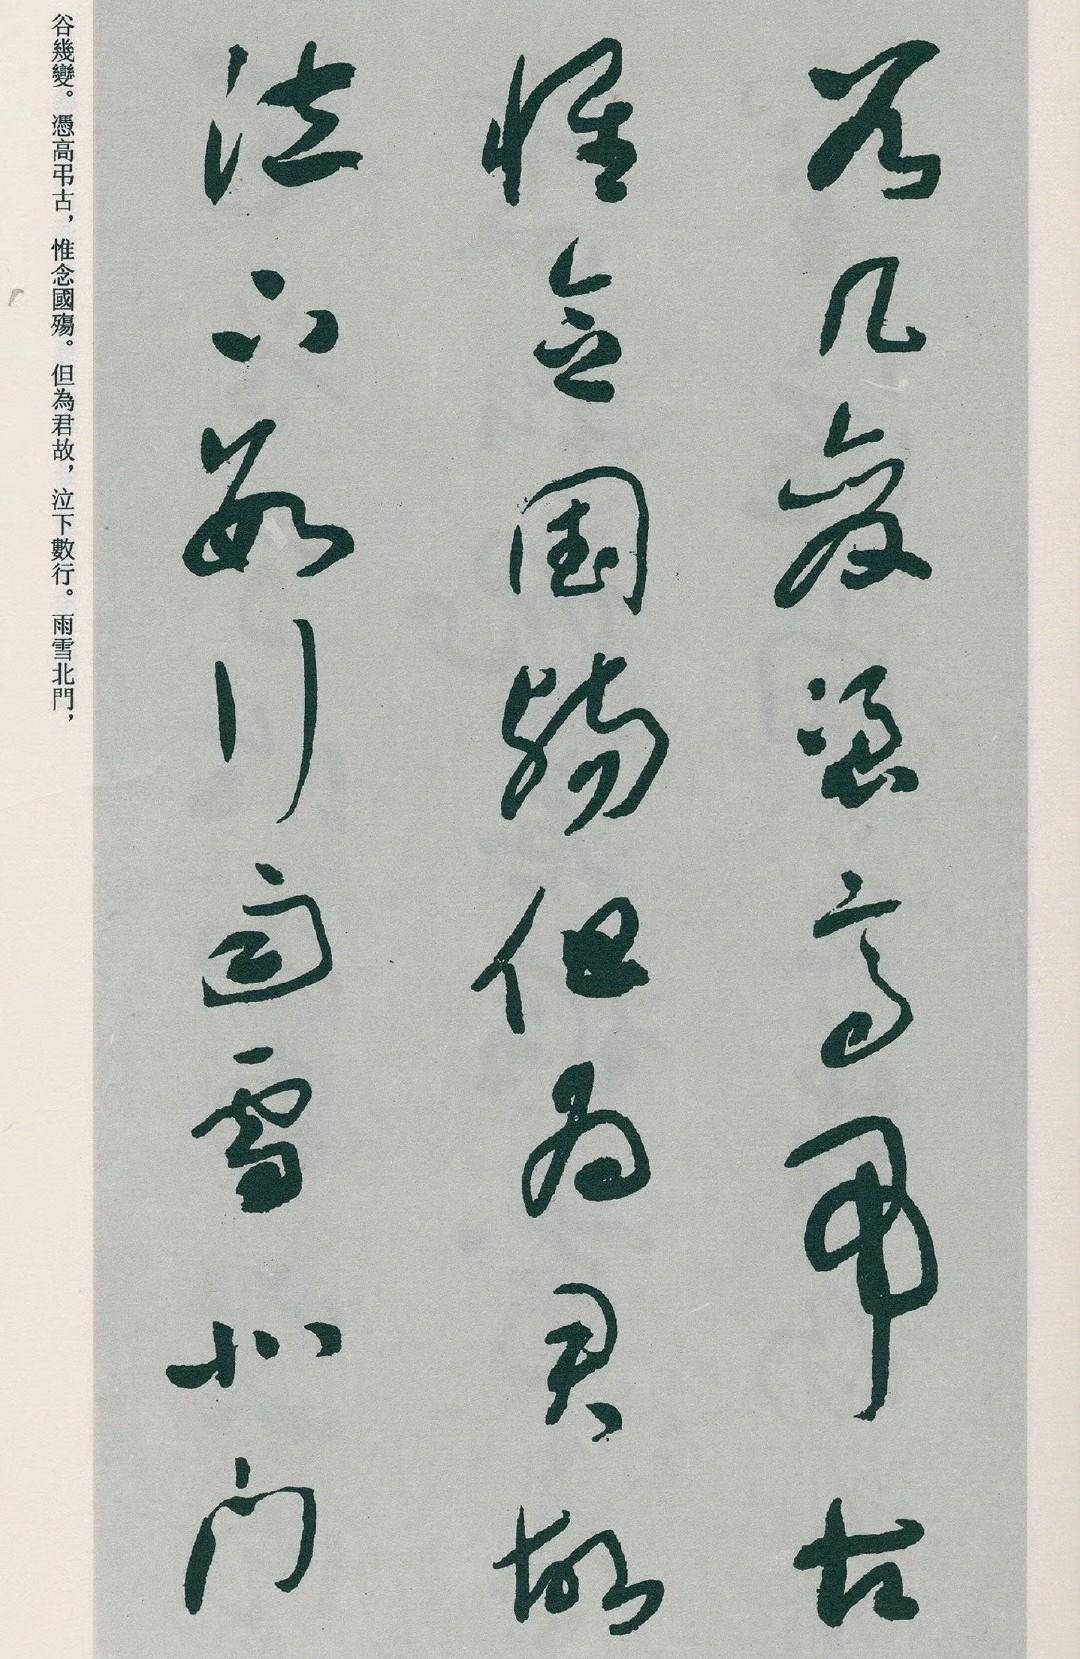 谷几變憑高弔古
惟念國殤但為君故
泣下數行雨雪北門
谷幾變。憑高弔古，惟念國殤。但為君故，泣下數行。雨雪北門，